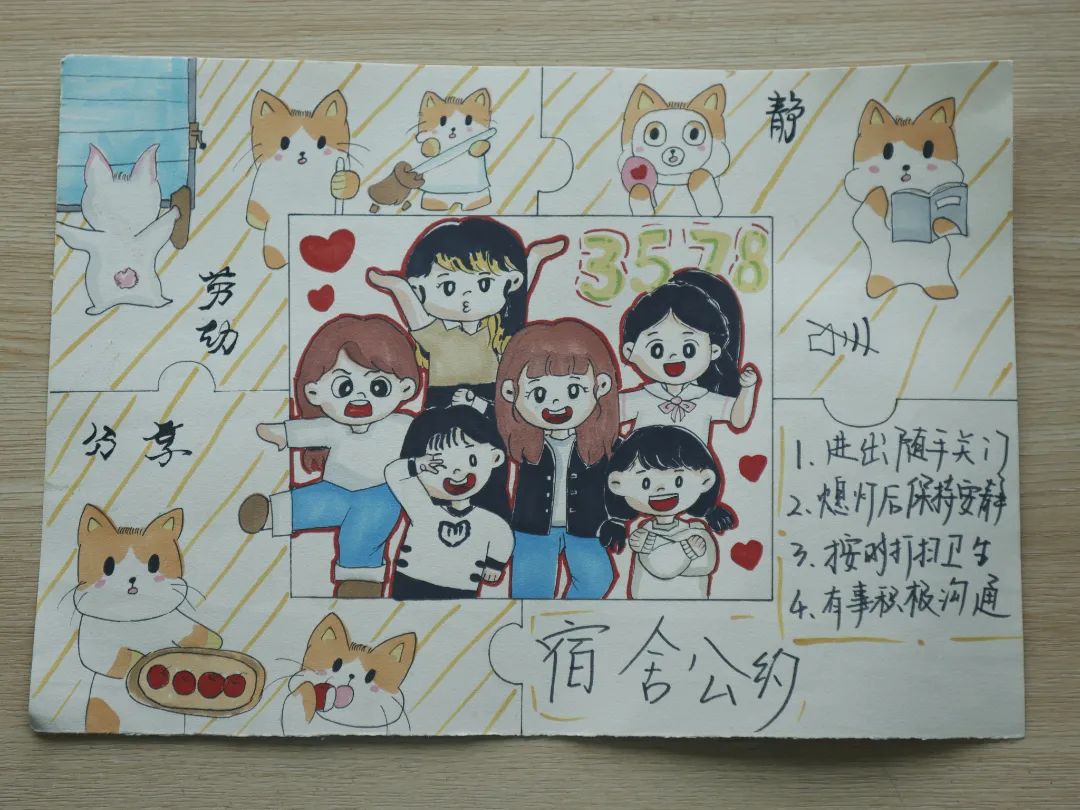 静
3578
劳动
分享
1. 进出随手关门
2. 熄灯后保持安静
3. 按时打扫卫生
4. 有事积极沟通
宿舍公约